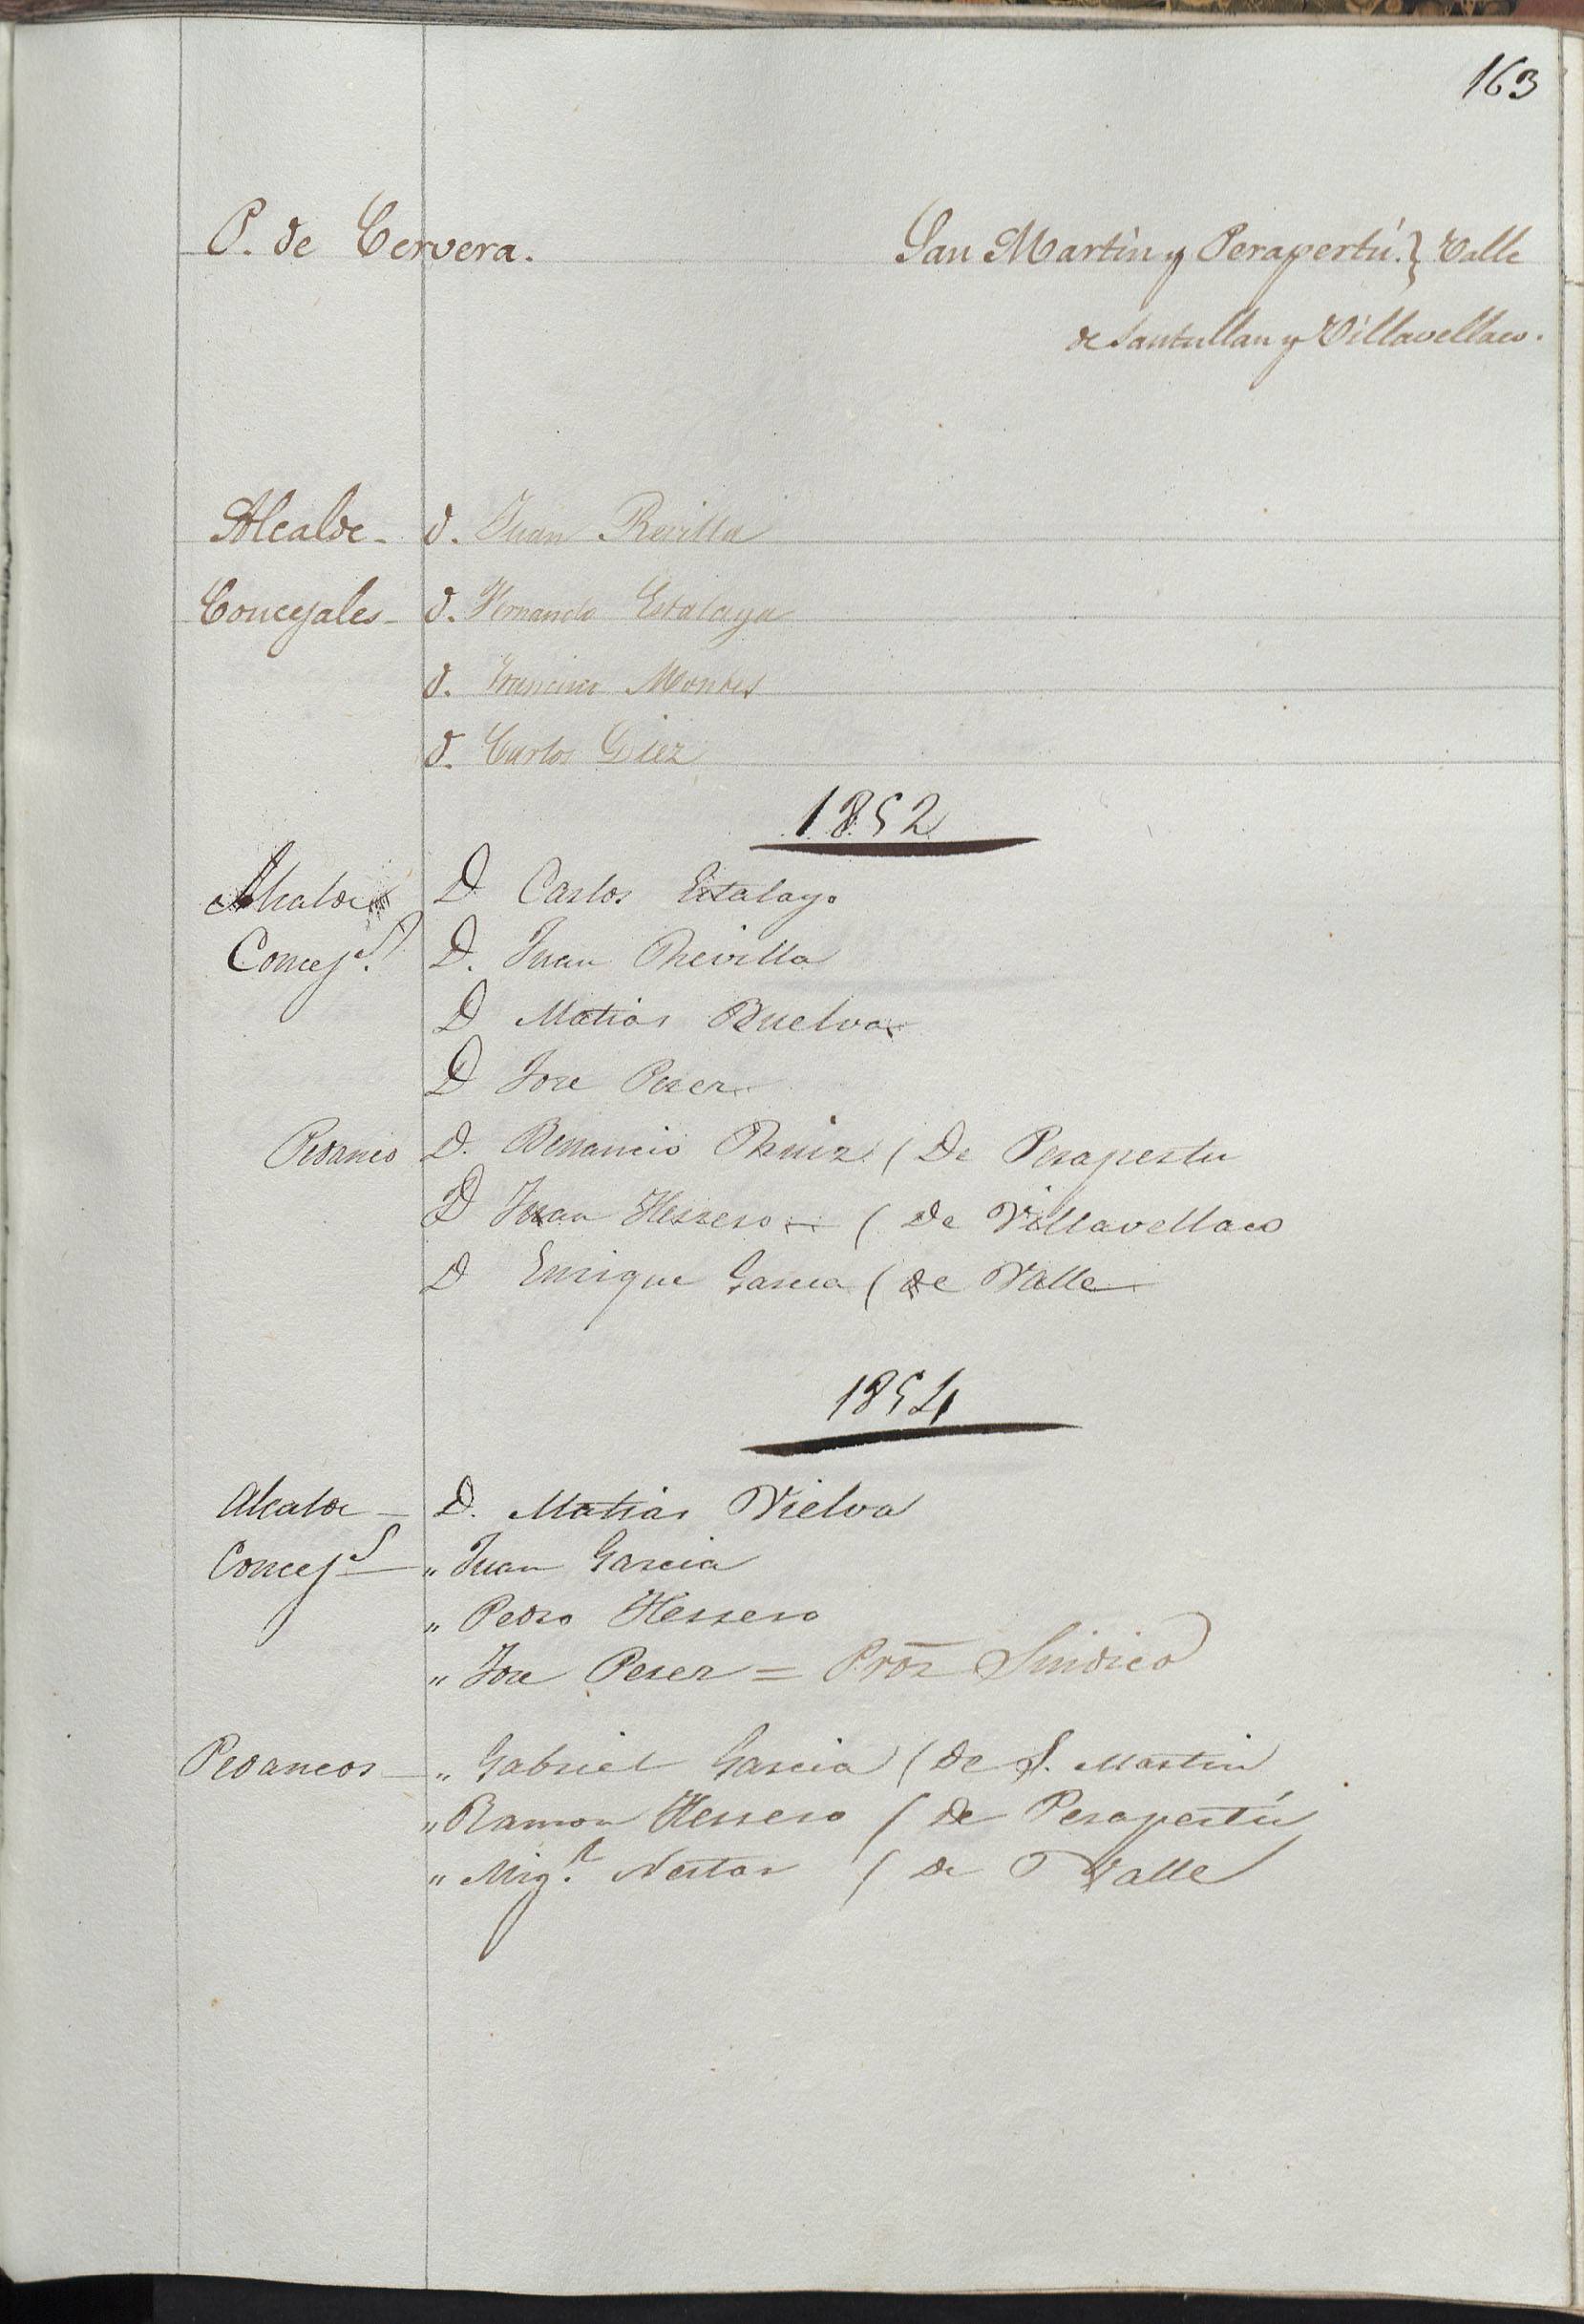 163
P. de Cervera.
San Martin y Perapertú. } Valle
de Santullan y Villavellaco.
Alcalde - D. Juan Revilla
Concejales - D. Fernando Estalaya
D. Francisco Montes
D. Carlos Diez
1852
Alcalde D Carlos Estalayo
Concej.s D. Juan Revilla
D Matias Buelva
D Jose Perez
Pedaneo D. Benancio Ruiz ( De Perapertu
D Juan Herrero ( De Villavellaco
D Enrique Garcia ( de Valle
1854
Alcalde - D. Matias Vielva
Concej.s - " Juan Garcia
" Pedro Herrero
" Jose Perez = Pror Sindico
Pedaneos - " Gabriel Garcia ( de S. Martin
" Ramon Herrero ( de Perapertú
" Mig.l Nestar ( de Valle